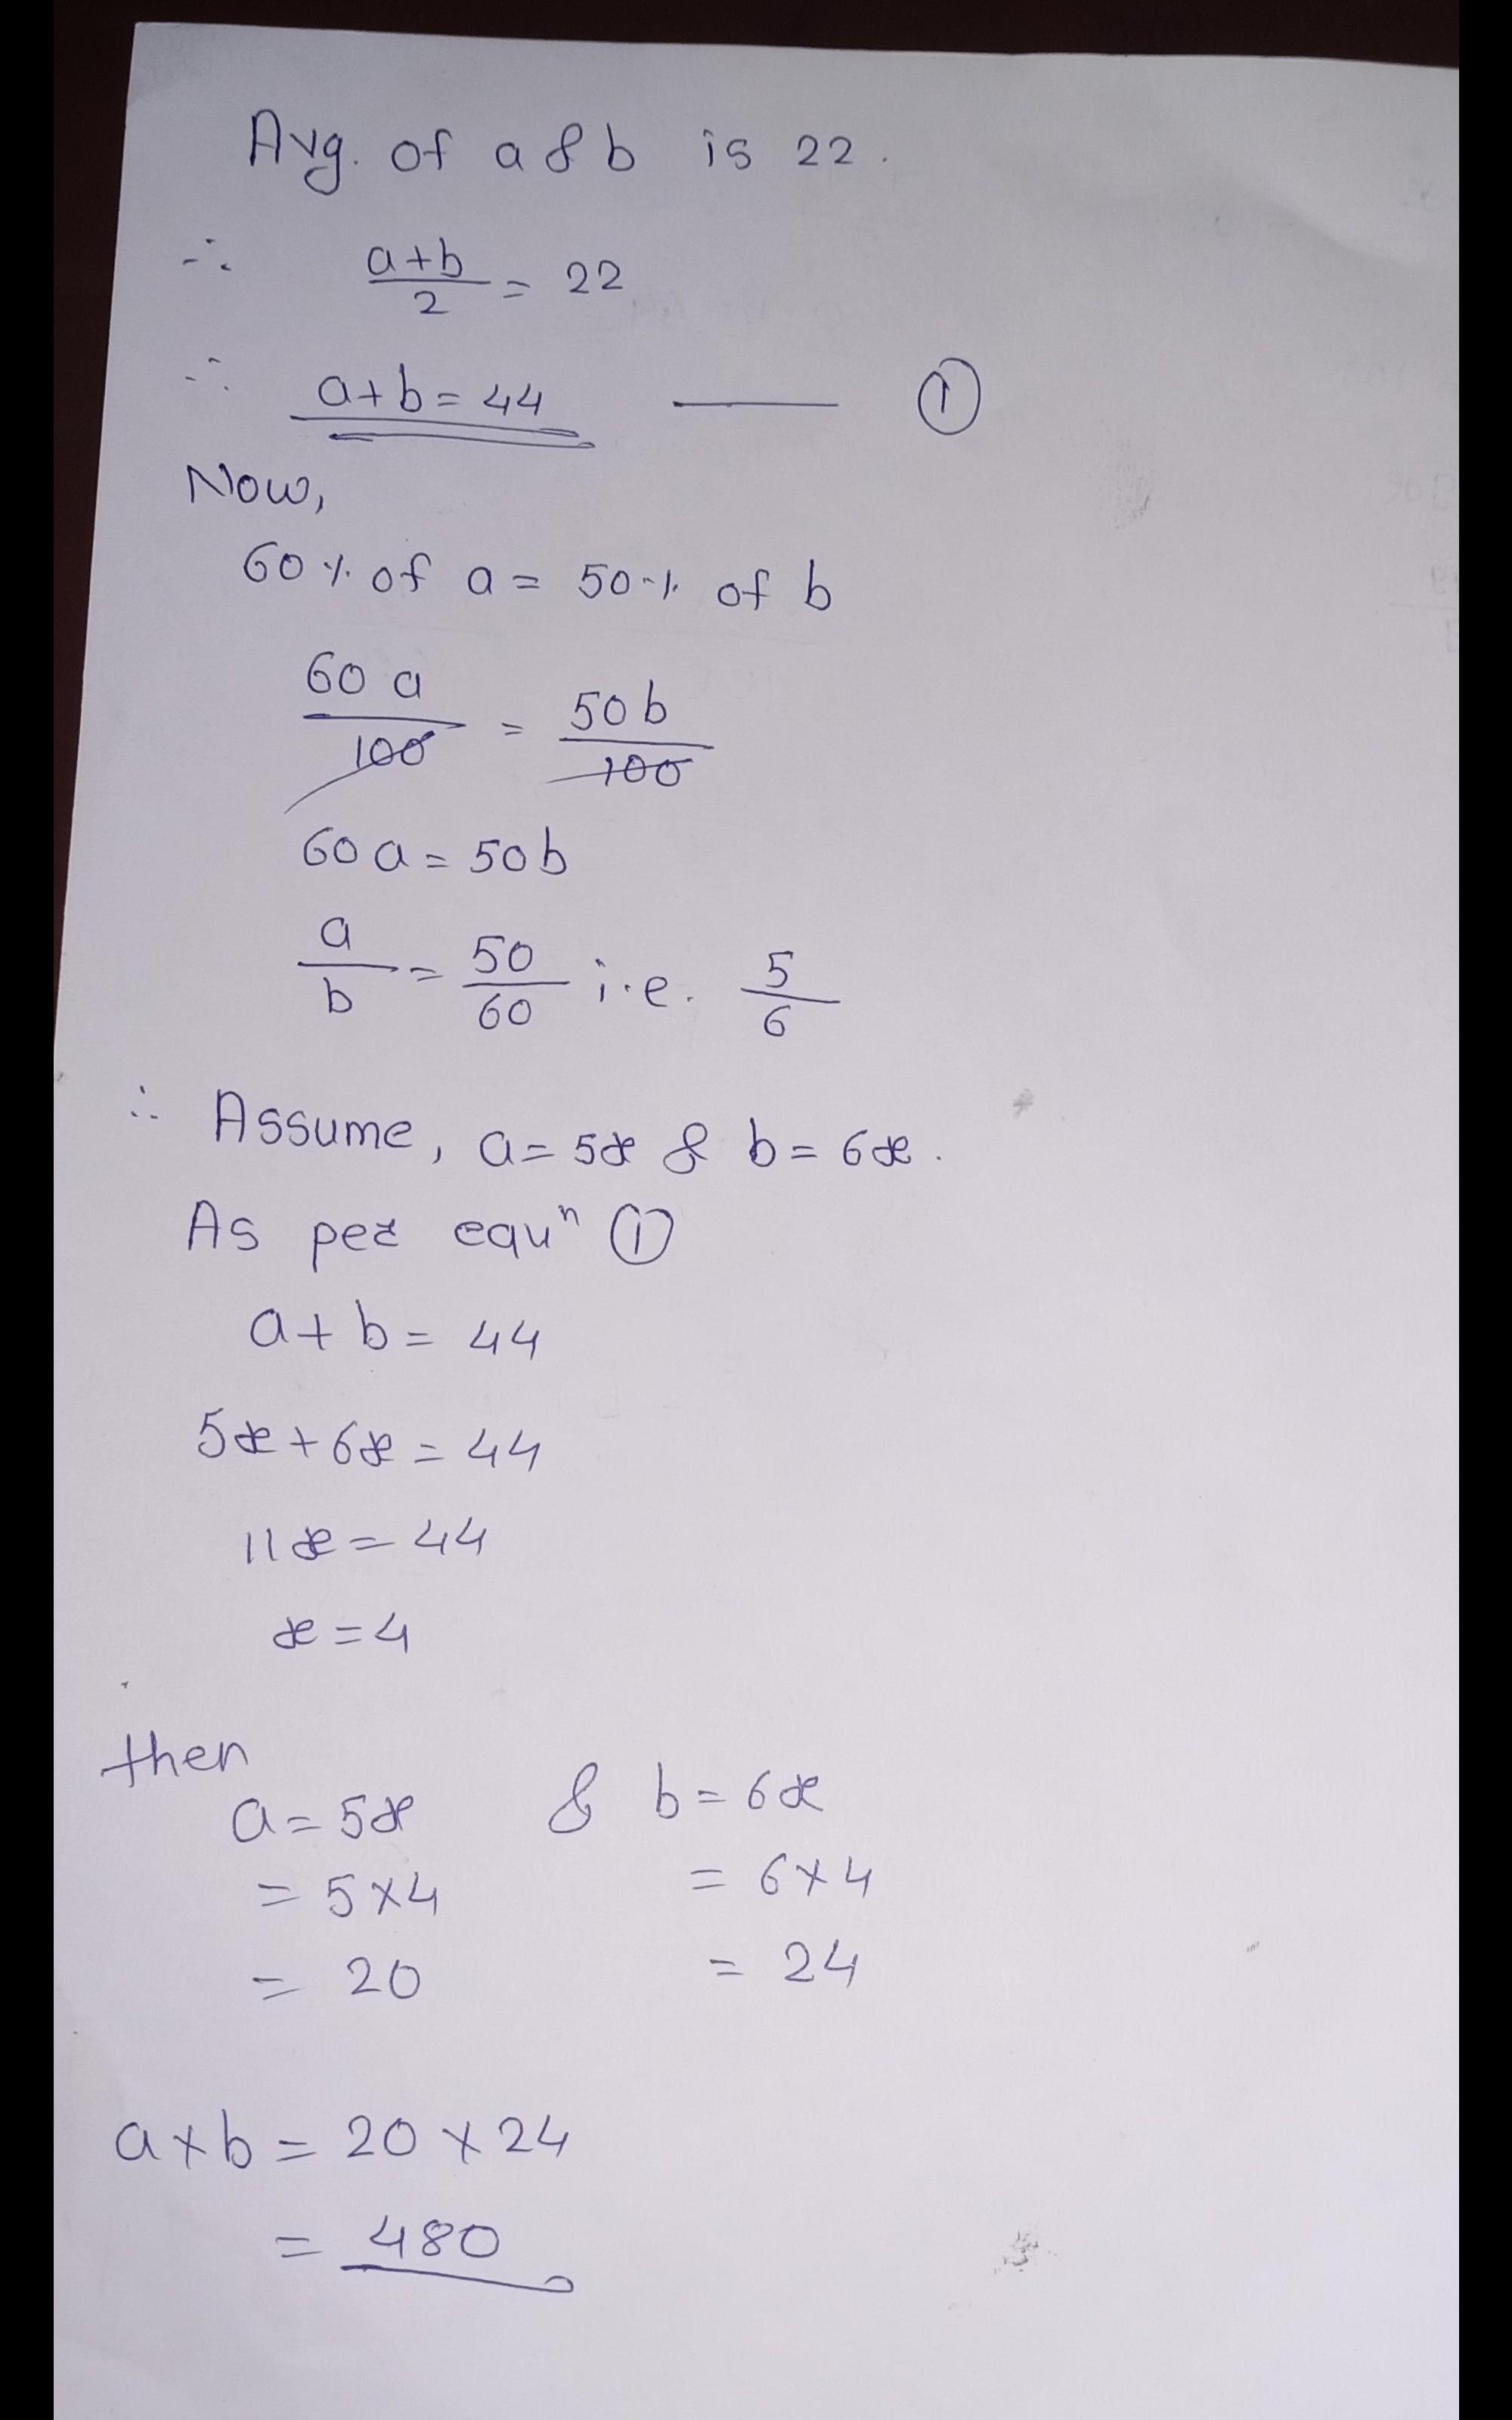 Avg. of a & b is 22.
∴ a+b/2 = 22
∴ a+b = 44 —— ①
Now,
60 % of a = 50 % of b
60 a/100 = 50 b/100
60 a = 50 b
a/b = 50/60 i.e. 5/6
∴ Assume, a = 5x & b = 6x.
As per equⁿ ①
a + b = 44
5x + 6x = 44
11x = 44
x = 4
then
a = 5x & b = 6x
= 5 × 4 = 6 × 4
= 20 = 24
a × b = 20 × 24
= 480